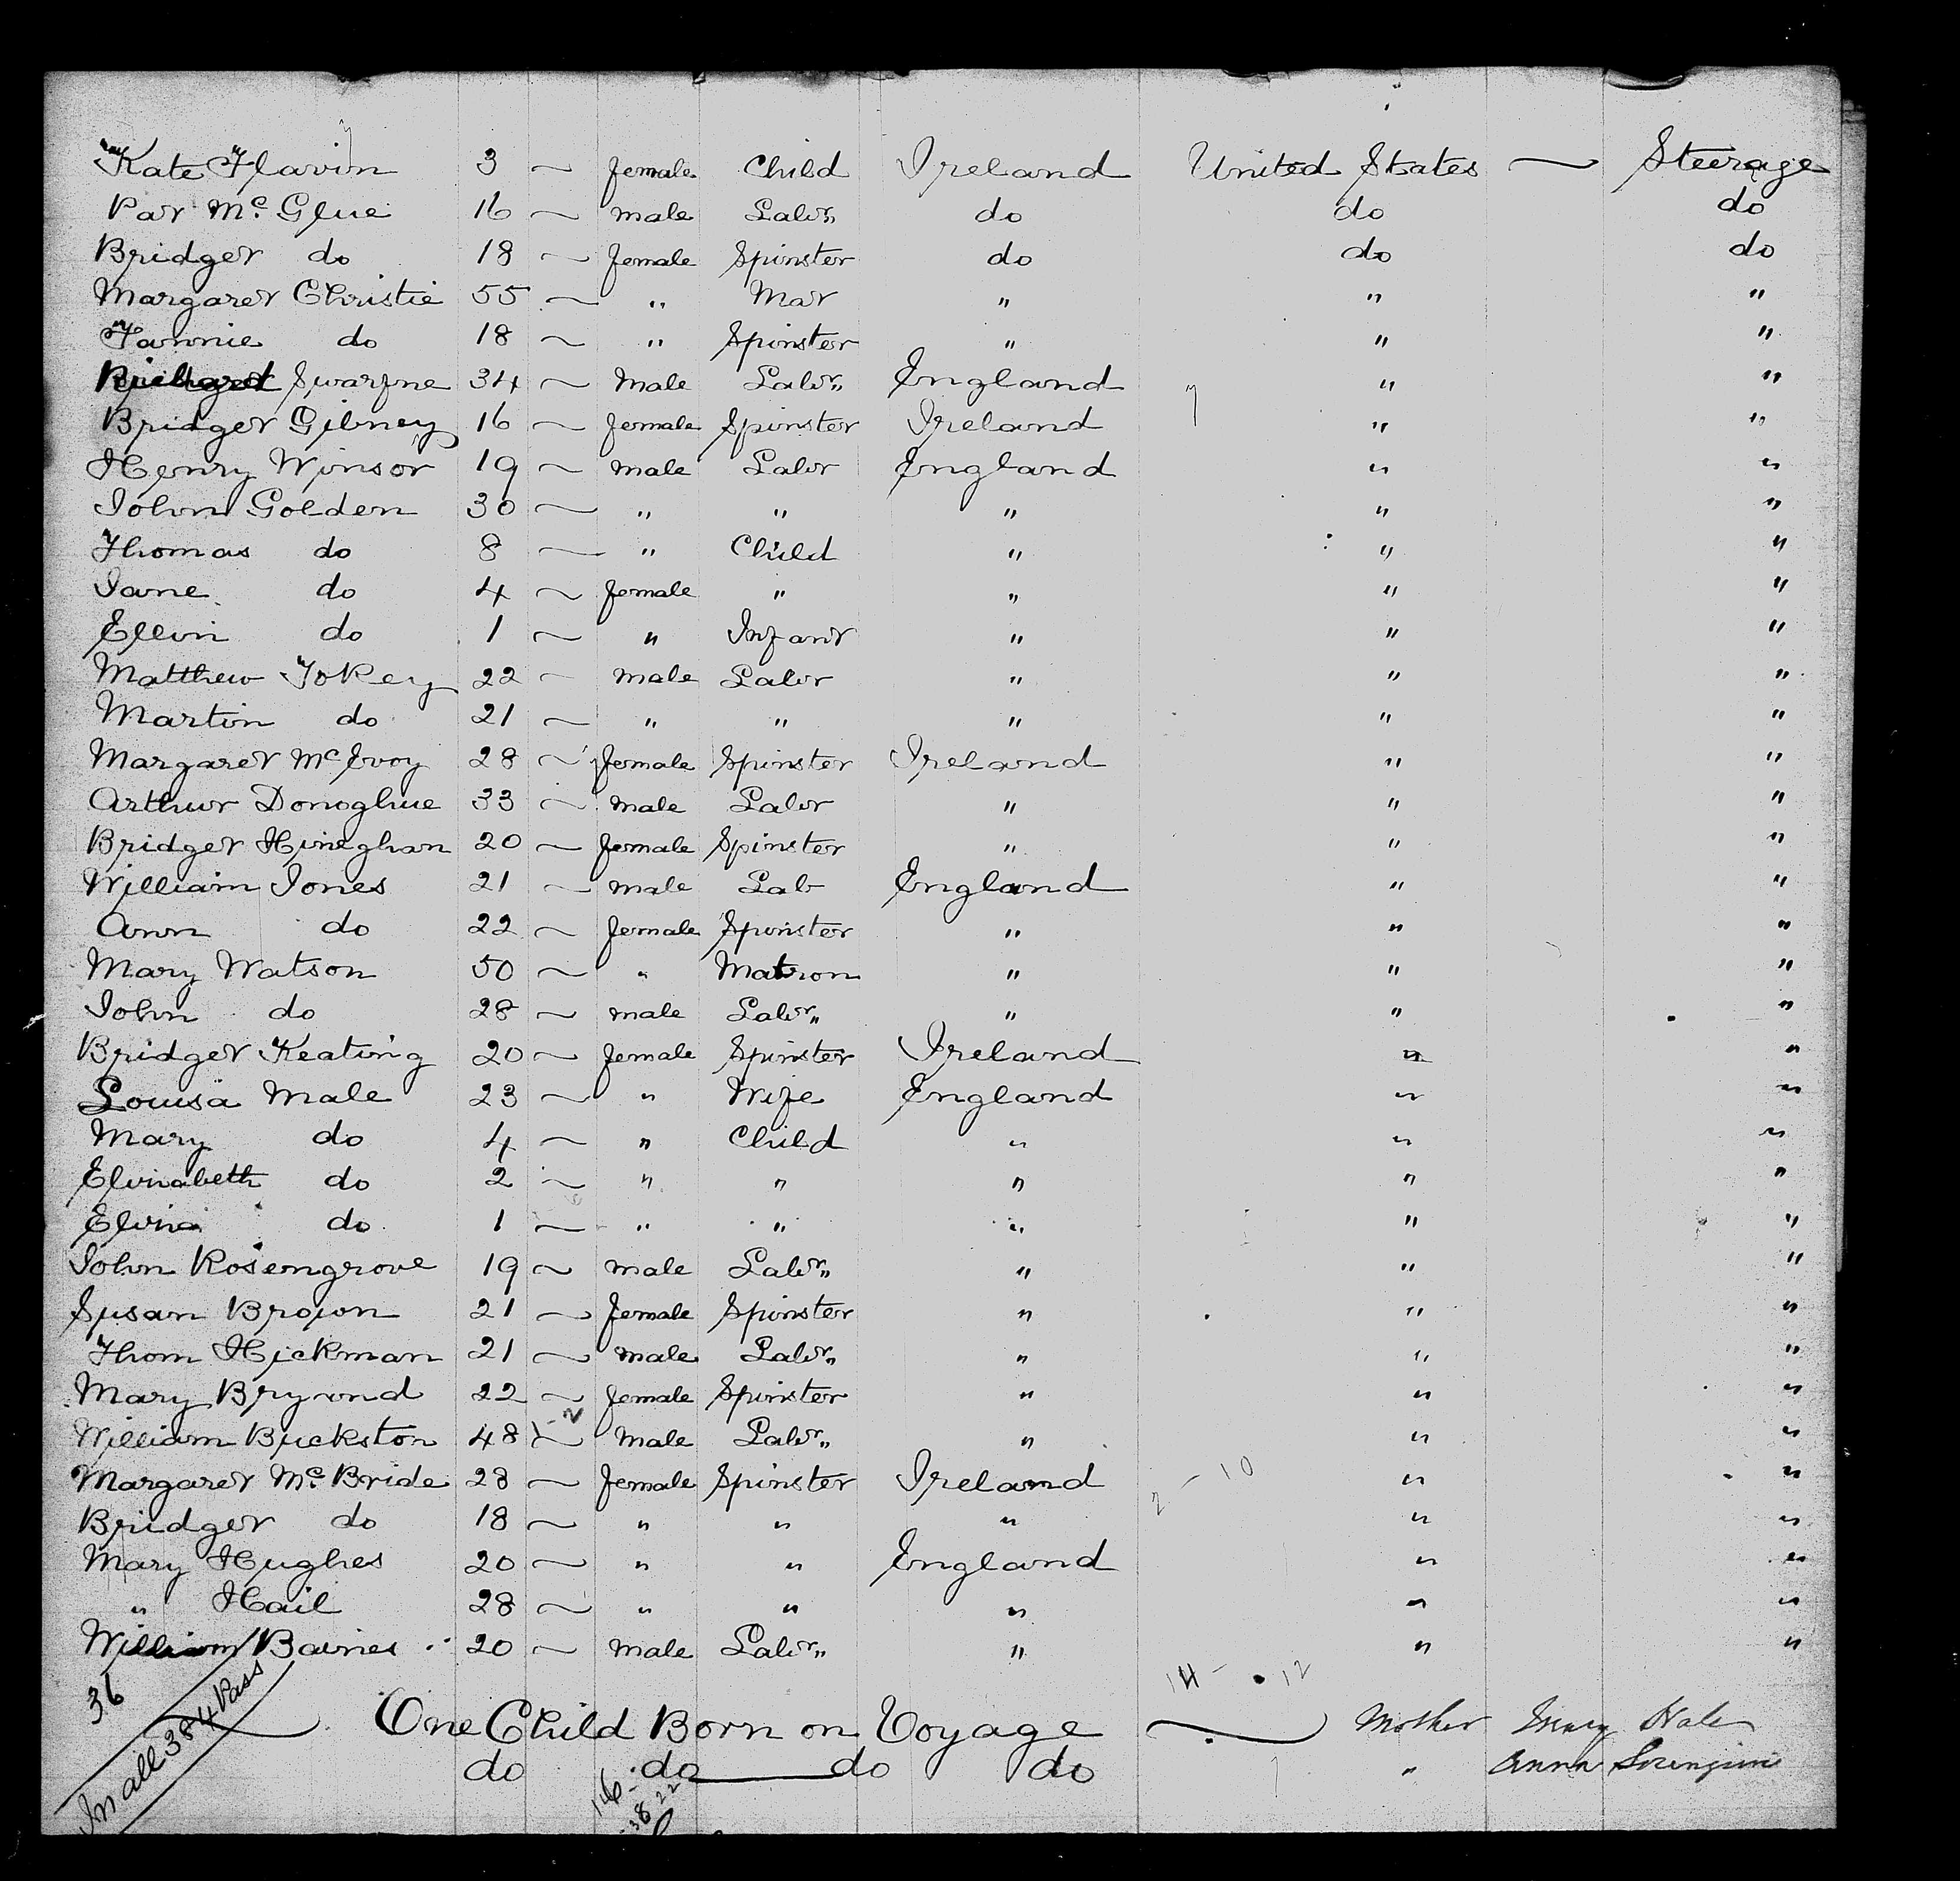 Kate Flavin 3 ~ female Child Ireland United States ~ Steerage
Pat Mc Glue 16 ~ male Labr,, do do do
Bridget do 18 ~ female Spinster do do do
Margaret Christie 55 ~ " Mat " " "
Fannie do 18 ~ " Spinster " " "
Richard 34 ~ male Labr,, England " "
Bridget Gibney 16 ~ female Spinster Ireland " "
Henry Winsor 19 ~ male Labor England " "
John Golden 30 ~ " " " " "
Thomas do 8 ~ " Child " " "
Jane do 4 ~ female " " " "
Ellin do 1 ~ " Infant " " "
Matthew Tokey 22 ~ male Labor " " "
Martin do 21 ~ " " " " "
Margaret McEvoy 28 ~ female Spinster Ireland " "
Arthur Donoghue 33 ~ male Labor " " "
Bridget Hineghan 20 ~ female Spinster " " "
William Jones 21 ~ male Lab England " "
Ann do 22 ~ female Spinster " " "
Mary Watson 50 ~ " Matron " " "
John do 28 ~ male Labr,, " " "
Bridget Keating 20 ~ female Spinster Ireland " "
Louisa Male 23 ~ " Wife England " "
Mary do 4 ~ " Child " " "
Elizabeth do 2 ~ " " " " "
Eliza do 1 ~ " " " " "
John Rosengrove 19 ~ male Labr,, " " "
Susan Brown 21 ~ female Spinster " " "
Thom Hickman 21 ~ male Labr,, " " "
Mary Bryand 22 ~ female Spinster " " "
William Buckston 48 ~ male Labr,, " " "
Margaret Mc Bride 28 ~ female Spinster Ireland 2 - 10 " "
Bridget do 18 ~ " " " " "
Mary Hughes 20 ~ " " England " "
" Hail 28 ~ " " " " "
William Baines 20 ~ male Labr,, " " "
36
In all 384 Pass
One Child Born on Voyage ~ Mother Hale
do do do do " Anna